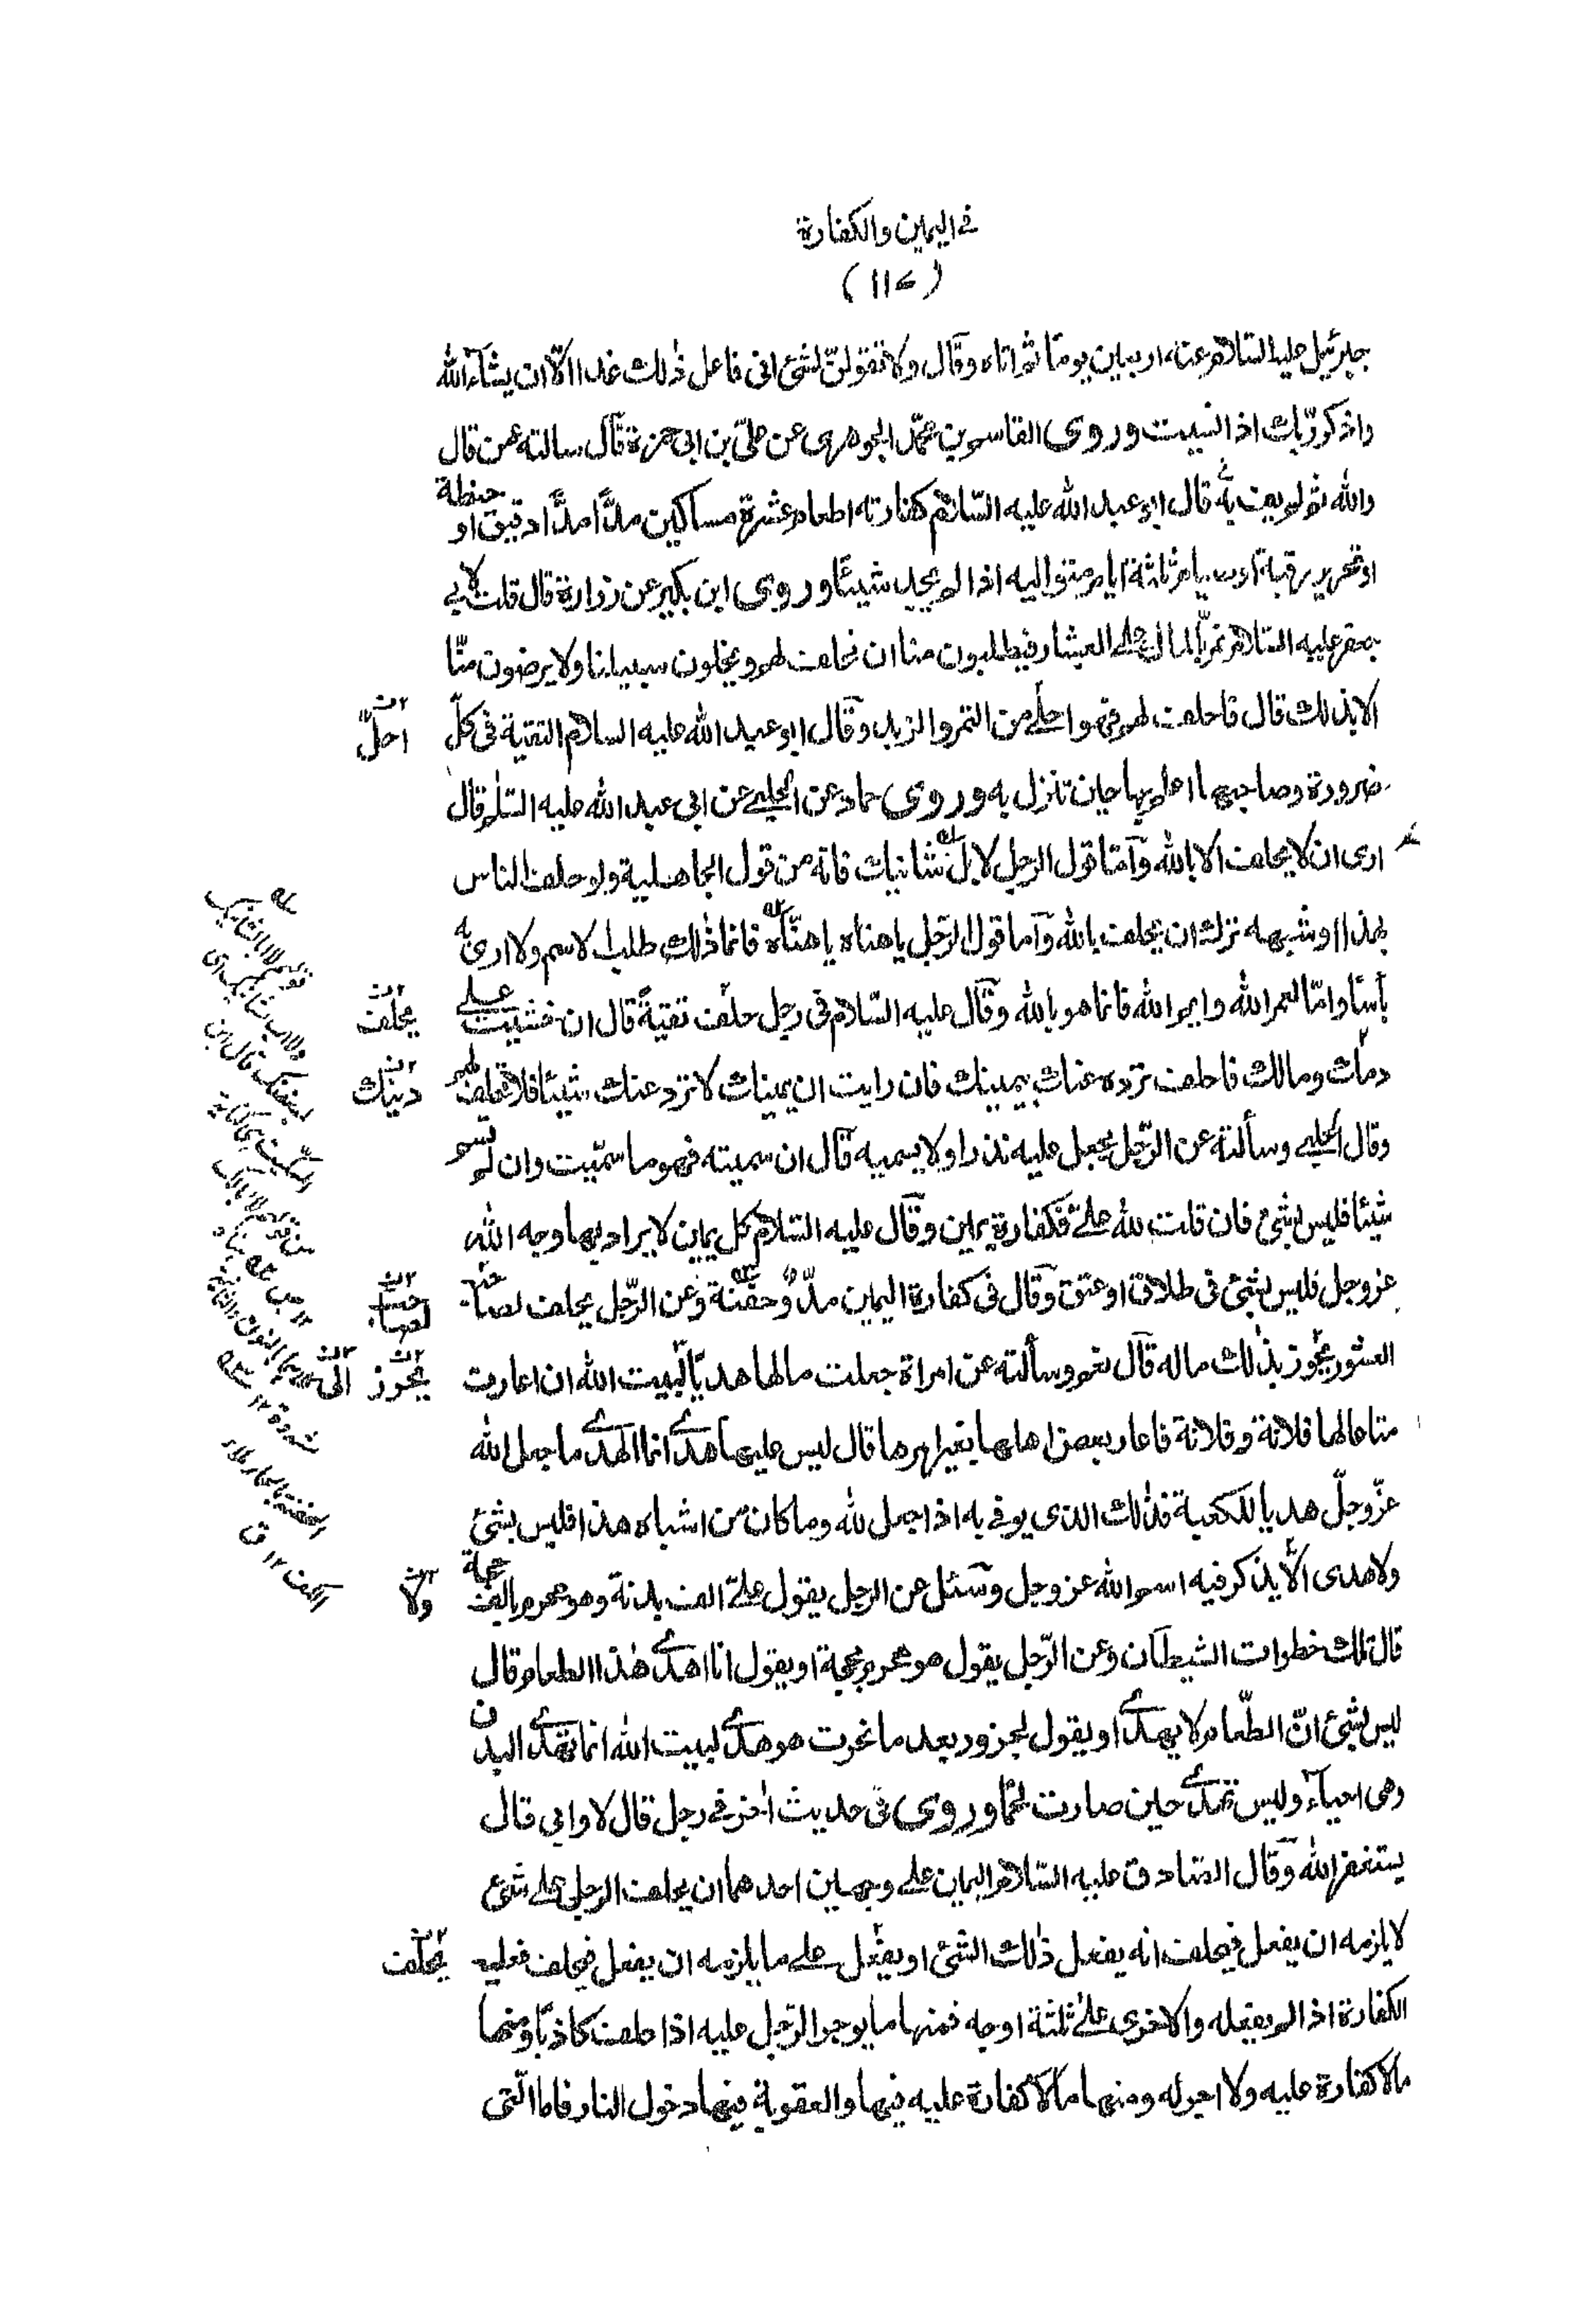 في اليمين والكفارة
(١١٧)
جبرئيل عليه السلام عنه اربعين يوما ثم اتاه وقال ولا تقولن لشئ اني فاعل ذلك غدا الا ان يشاء الله
واذكر ربك اذا نسيت وروى القاسم بن محمد الجوهري عن علي بن ابي حمزة قال سالته عمن قال
والله ثم لم يف به قال ابو عبد الله عليه السلام كفارته اطعام عشرة مساكين مدا مدا دقيق او حنطة
او تحرير رقبة او صيام ثلثة ايام متوالية اذا لم يجد شيئا وروى ابن بكير عن زرارة قال قلت لابي
جعفر عليه السلام نمر بالمال على العشار فيطلبون منا ان نحلف لهم ويخلون سبيلنا ولا يرضون منا
الا بذلك قال فاحلف لهم فهو احلى من التمر والزبد وقال ابو عبد الله عليه السلام التقية في كل
احل
ضرورة وصاحبها اعلم بها حين تنزل به وروى حماد عن الحلبي عن ابي عبد الله عليه السلم قال
ارى ان لا يحلف الا بالله واما قول الرجل لا بل شانيك فانه من قول الجاهلية ولو حلف الناس
بهذا او شبهه ترك ان يحلف بالله واما قول الرجل ياهناه ياهناه فانما ذلك طلب الاسم ولا ارى به
بأسا واما لعمر الله وايم الله فانما هو بالله وقال عليه السلام في رجل حلف تقية قال ان خشيت على
يحلف
دمك ومالك فاحلف ترده عنك بيمينك فان رايت ان يمينك لا ترد عنك شيئا فلا تحلف لهم
دينك
وقال الحلبي وسألته عن الرجل يجعل عليه نذرا ولا يسميه قال ان سميته فهو ما سميت وان لم تسم
شيئا فليس بشئ فان قلت لله علي فكفارة يمين وقال عليه السلام كل يمين لا يراد بها وجه الله
عز وجل فليس بشئ في طلاق او عتق وقال في كفارة اليمين مد وحفنة وعن الرجل يحلف لصاحب
العشور يجوز بذلك ماله قال نعم وسألته عن امراة جعلت مالها هديا لبيت الله ان اعارت
يحوز الى
متاعا لها فلانة وفلانة فاعار بعض اهلها بغير امرها قال ليس عليها هدي انما الهدي ما جعل الله
عز وجل هديا للكعبة فذلك الذي يوفى به اذا جعل لله وما كان من اشباه هذا فليس بشئ
ولا هدى الا يذكر فيه اسم الله عز وجل وسئل عن الرجل يقول علي الف بدنة وهو محرم بالف حجة
ولا
قال تلك خطوات الشيطان وعن الرجل يقول هو محرم بحجة او يقول انا اهدي هذا الطعام قال
ليس بشئ ان الطعام لا يهدى او يقول لجزور بعد ما نحرت هو هدي لبيت الله انما تهدى البدن
وهي احياء وليس تهدى حين صارت لحما وروى في حديث آخر في رجل قال لا وابي قال
يستغفر الله وقال الصادق عليه السلام اليمين على وجهين احدهما ان يحلف الرجل على شئ
لا يلزمه ان يفعل فيحلف انه يفعل ذلك الشئ او يفعل على ما يلزمه ان يفعل فيحلف فعليه
يحلف
الكفارة اذا لم يفعله والاخرى على ثلثة اوجه فمنها ما يوجر الرجل عليه اذا حلف كاذبا ومنها
ما لا كفارة عليه ولا اجر له ومنها ما لا كفارة عليه فيها والعقوبة فيها دخول النار فاما التي